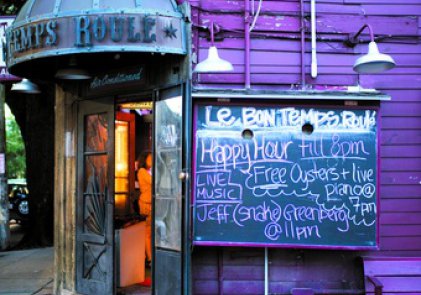 TEMPS ROULÉ ★
Air Conditioned
Le Bon Temps Roulé
Happy Hour till 8pm
LIVE MUSIC
Free Oysters + live
piano @
7pm
Jeff (snake) Greenberg
@ 11pm